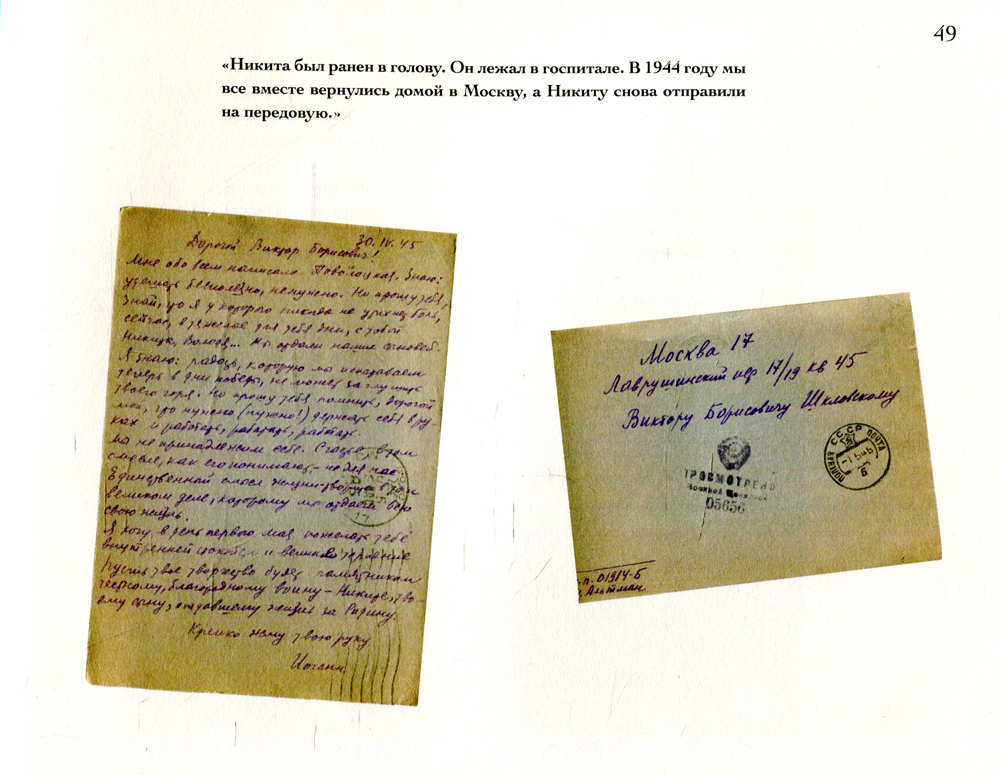 49
«Никита был ранен в голову. Он лежал в госпитале. В 1944 году мы
все вместе вернулись домой в Москву, а Никиту снова отправили
на передовую.»
30.IV.45
Дорогой Виктор Борисович!
Мне обо всем написала Поволоцкая. Знаю:
утешать бесполезно, ненужно. Но прошу тебя,
знай, что я у которого никогда не утихнет боль,
сейчас, в тяжелые для тебя дни, с тобой
Никита, Володя... Мы отдали наших сыновей.
Я знаю: радость, которую мы испытываем
теперь в дни победы, не может заглушить
твоего горя. Но прошу тебя помнить, дорогой
мой, что нужно (нужно!) держать себя в ру-
ках и работать, работать, работать.
Мы не принадлежим себе. Счастье в том
смысле, как его понимают – не для нас.
Единственный смысл жизни – творить в том
великом деле, которому мы отдаем всю
свою жизнь.
Я хочу в день первого мая пожелать тебе
внутренней и великого терпения
Пусть твое творчество будет памятником
честному, благородному воину – Никите, тво-
ему сыну, отдавшему жизнь за Родину.
Крепко жму твою руку.
Иоганн.
Москва 17
Лаврушинский пер 17/19 кв 45
Виктору Борисовичу Шкловскому
ПРОСМОТРЕНО
Военной Цензурой
05656
ПОЛЕВАЯ ПОЧТА
СССР
п.п. 01914-Б
Альтман.